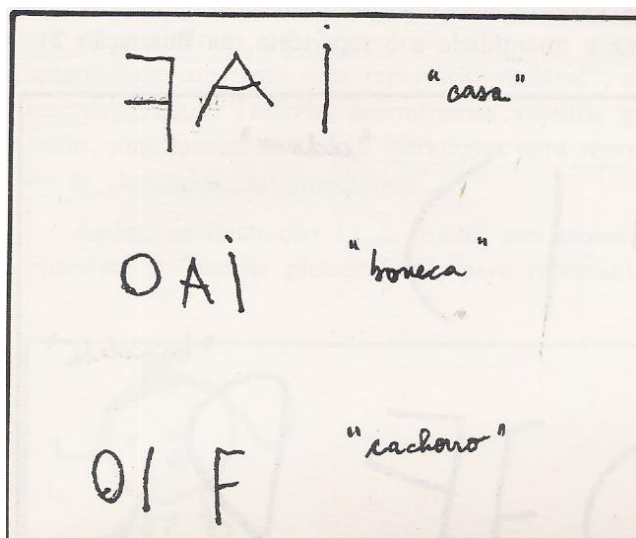 FAi "casa"
OAi "boneca"
OI F "cachorro"